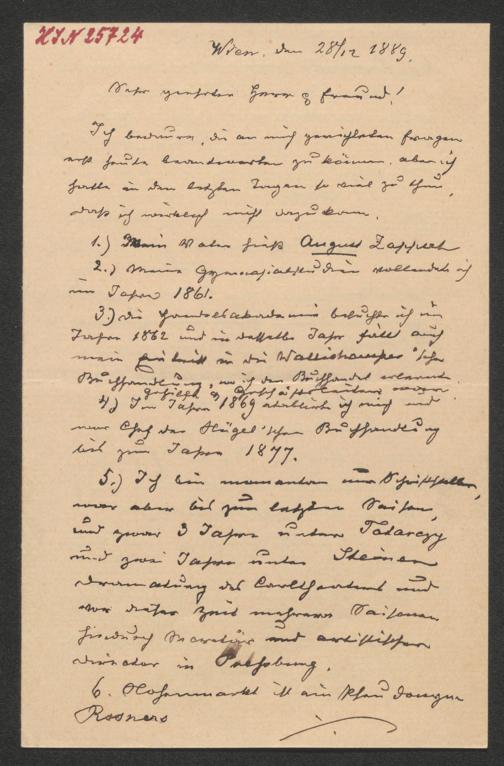 HIN 25724
Wien, den 28/12 1889.
Sehr geehrter Herr & Freund!
Ich bedaure, die an mich gerichteten Fragen
erst heute beantworten zu können, aber ich
hatte in den letzten Tagen so viel zu thun,
daß ich wirklich nicht dazu kam.
1.) Mein Vater hieß August Zappert
2.) Meine Gymnasialstudien vollendete ich
im Jahre 1861.
3.) die Handelsakademie besuchte ich im
Jahre 1862 und in dasselbe Jahr fällt auch
mein Eintritt in die Wallishausser'sche
Buchhandlung, wo ich den Buchhandel erlernte
Gehilfe & Geschäftsleiter war.
4) Im Jahre 1869 etablirte ich mich und
war Chef der Hügel'schen Buchhandlung
bis zum Jahre 1877.
5.) Ich bin momentan nur Schriftsteller,
war aber bis zur letzten Saison,
und zwar 3 Jahre unter Tatarczy
und zwei Jahre unter Steiner
Dramaturg des Carltheaters und
vor dieser Zeit mehrere Saisonen
hindurch Secretär und artistischer
Director in Preßburg.
6. Hohenmarkt ist ein Pseudonym
Rosners